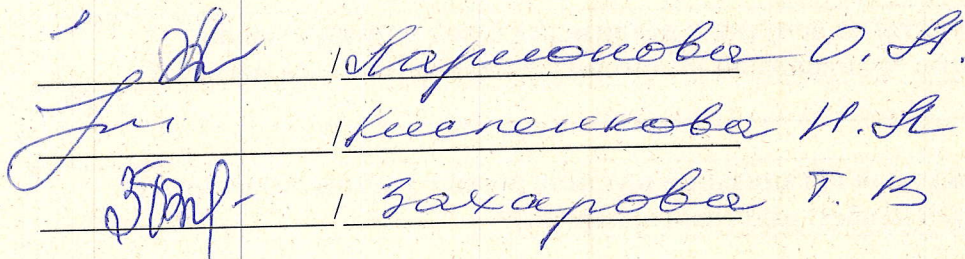 / Ларионова О. Я.
/ Киспенкова Н. Я
/ Захарова Т. В